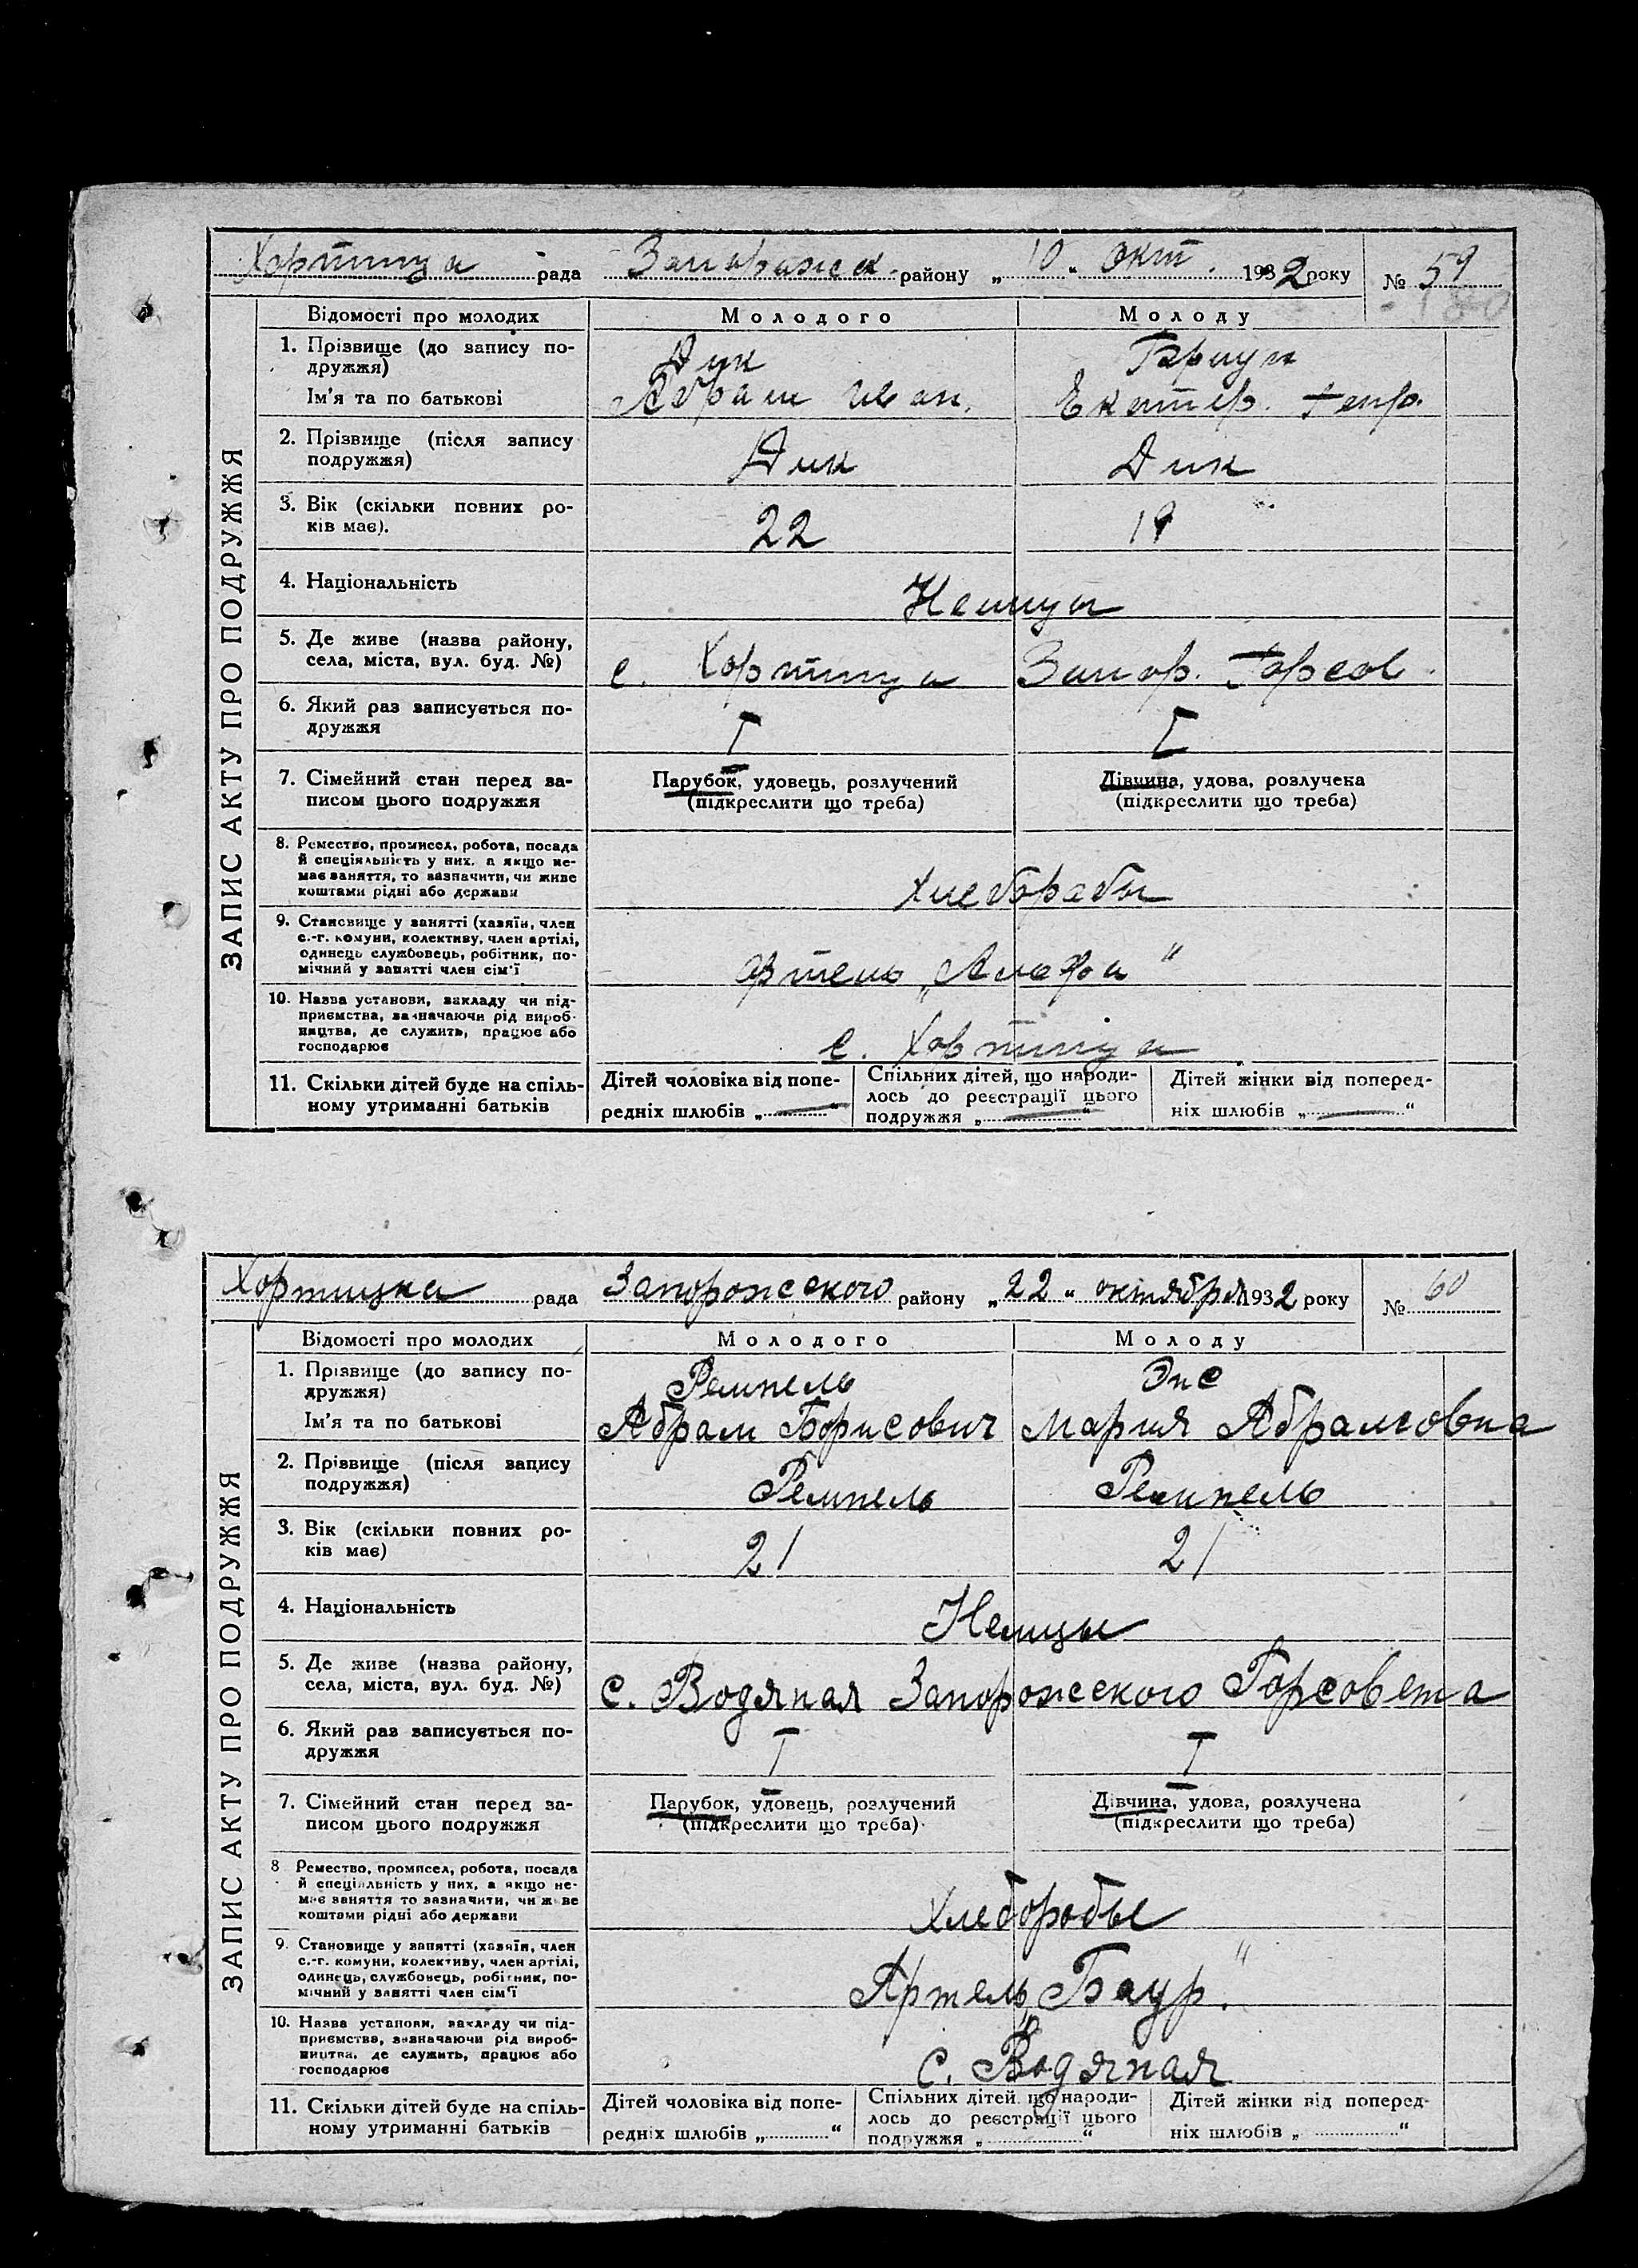 Хортица рада Запорожск. району „ 10 “ окт. 1932 року № 59
ЗАПИС АКТУ ПРО ПОДРУЖЖЯ
Відомості про молодих
Молодого
Молоду
1. Прізвище (до запису по-
дружжя)
Дик
Ім'я та по батькові
Абрам Иван.
Екатер. Генр.
2. Прізвище (після запису
подружжя)
Дик
Дик
3. Вік (скільки повних ро-
ків має).
22
19
4. Національність
Немцы
5. Де живе (назва району,
села, міста, вул. буд. №)
с. Хортица Запор. Горсов.
6. Який раз записується по-
дружжя
I
I
7. Сімейний стан перед за-
писом цього подружжя
Парубок, удовець, розлучений
(підкреслити що треба)
Дівчина, удова, розлучена
(підкреслити що треба)
8. Ремество, промисел, робота, посада
й спеціяльність у них, а якщо не-
має заняття, то зазначити, чи живе
коштами рідні або держави
Хлеборобы
9. Становище у занятті (хазяїн, член
с.-г. комуни, колективу, член артілі,
одинець службовець, робітник, по-
мічний у занятті член сім'ї
артель
10. Назва установи, закладу чи під-
приємства, зазначаючи рід вироб-
ництва, де служить, працює або
господарює
с. Хортица
11. Скільки дітей буде на спіль-
ному утриманні батьків
Дітей чоловіка від попе-
редніх шлюбів „ — “
Спільних дітей, що народи-
лось до реєстрації цього
подружжя „ — “
Дітей жінки від поперед-
ніх шлюбів „ — “
Хортицка рада Запорожского району „ 22 “ октября 1932 року № 60
ЗАПИС АКТУ ПРО ПОДРУЖЖЯ
Відомості про молодих
Молодого
Молоду
1. Прізвище (до запису по-
дружжя)
Ремпель
Энс
Ім'я та по батькові
Абрам Борисович
Мария Абрамовна
2. Прізвище (після запису
подружжя)
Ремпель
Ремпель
3. Вік (скільки повних ро-
ків має)
21
21
4. Національність
Немцы
5. Де живе (назва району,
села, міста, вул. буд. №)
с. Водяная Запорожского Горсовета
6. Який раз записується по-
дружжя
I
I
7. Сімейний стан перед за-
писом цього подружжя
Парубок, удовець, розлучений
(підкреслити що треба)
Дівчина, удова, розлучена
(підкреслити що треба)
8 Ремество, промисел, робота, посада
й спеціяльність у них, а якщо не-
має заняття то зазначити, чи живе
коштами рідні або держави
Хлеборобы
9. Становище у занятті (хазяїн, член
с.-г. комуни, колективу, член артілі,
одинець, службовець, робітник, по-
мічний у занятті член сім'ї
Артель „Баур.“
10. Назва установи, закладу чи під-
приємства, зазначаючи рід вироб-
ництва, де служить, працює або
господарює
с. Водяная
11. Скільки дітей буде на спіль-
ному утриманні батьків
Дітей чоловіка від попе-
редніх шлюбів „ “
Спільних дітей що народи-
лось до реєстрації цього
подружжя „ “
Дітей жінки від поперед-
ніх шлюбів „ “